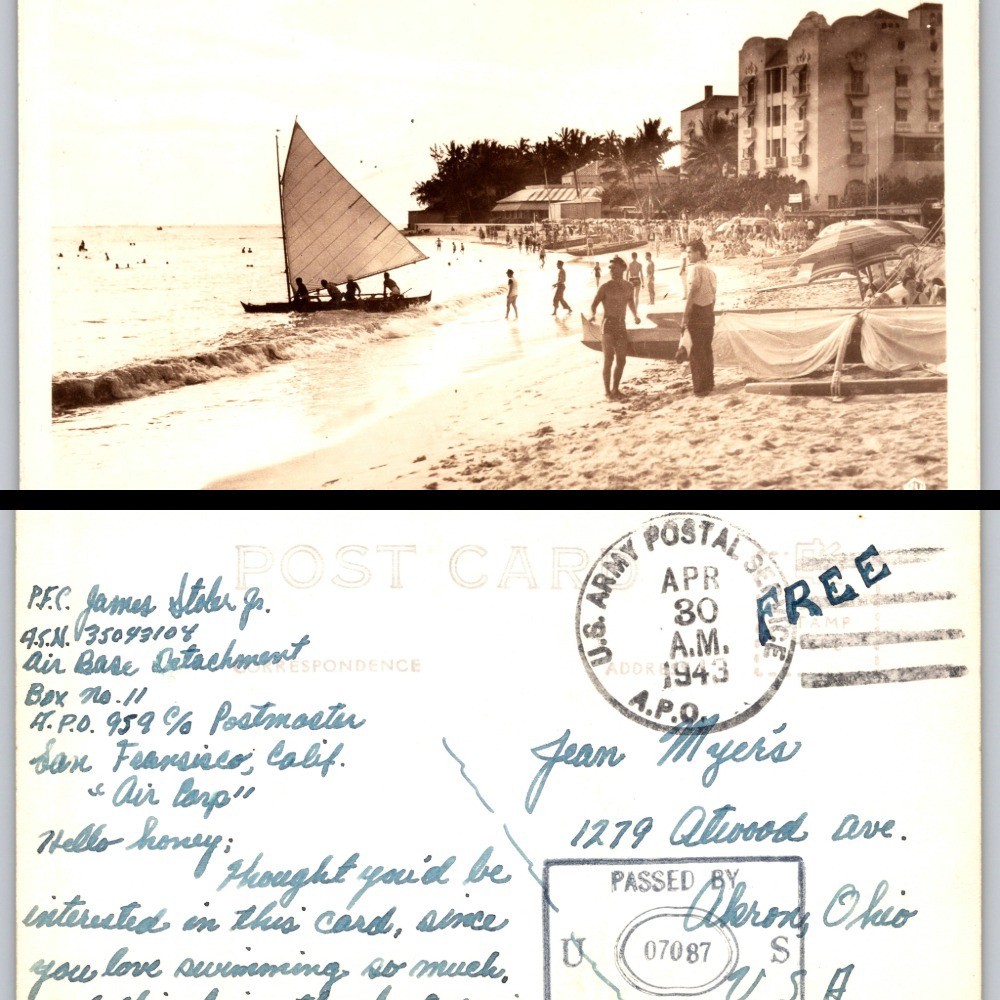 POST CARD
CORRESPONDENCE
ADDRESS
STAMP
U.S. ARMY POSTAL SERVICE
APR
30
A.M.
1943
A.P.O.
FREE
P.F.C. James Stober Jr.
A.S.N. 35043104
Air Base Detachment
Box No. 11
A.P.O. 959 c/o Postmaster
San Fransisco, Calif.
"Air Corp"
Hello honey;
Thought you'd be
interested in this card, since
you love swimming so much.
Jean Myer's
1279 Atwood ave.
Akron, Ohio
U S A
PASSED BY
U 07087 S